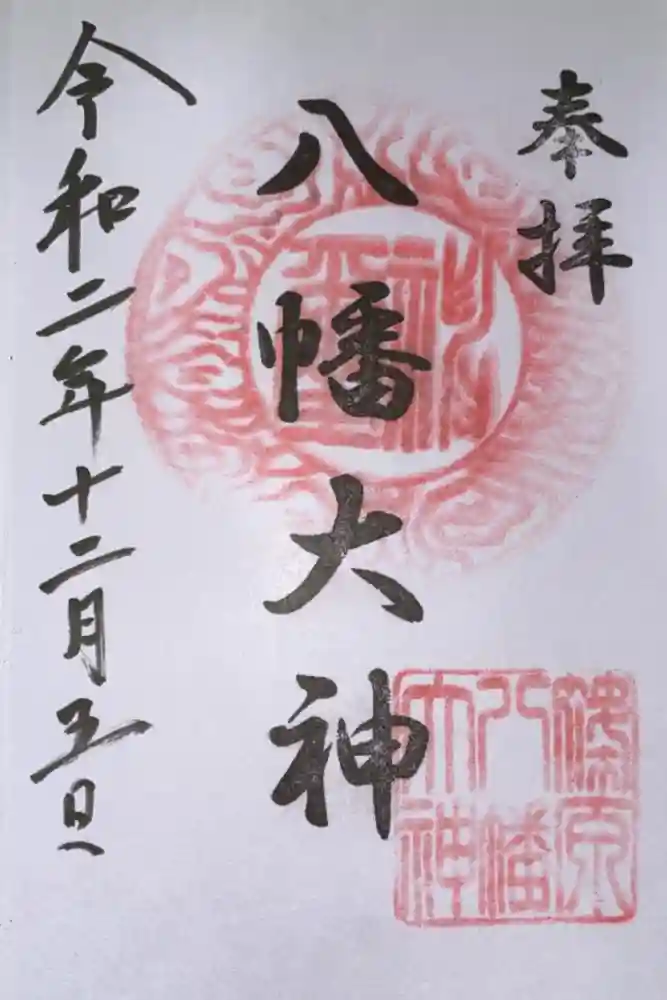 奉拝
八幡大神
令和二年十二月五日
篠原
八幡
大神